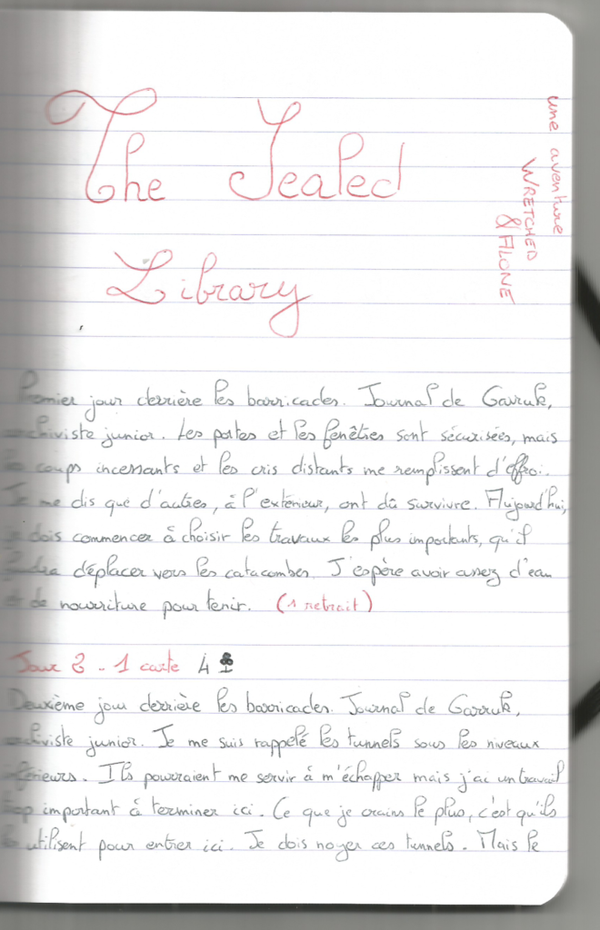 The Sealed
Library
une aventure
WRETCHED
& ALONE
Premier jour derrière les barricades. Journal de Garruk,
archiviste junior. Les portes et les fenêtres sont sécurisées, mais
les coups incessants et les cris distants me remplissent d'effroi.
Je me dis que d'autres, à l'extérieur, ont dû survivre. Aujourd'hui,
je dois commencer à choisir les travaux les plus importants, qu'il
faudra déplacer vers les catacombes. J'espère avoir assez d'eau
et de nourriture pour tenir. (1 retrait)
Jour 2 - 1 carte 4 ♣
Deuxième jour derrière les barricades. Journal de Garruk,
archiviste junior. Je me suis rappelé les tunnels sous les niveaux
inférieurs. Ils pourraient me servir à m'échapper mais j'ai un travail
trop important à terminer ici. Ce que je crains le plus, c'est qu'ils
les utilisent pour entrer ici. Je dois noyer ces tunnels. Mais le